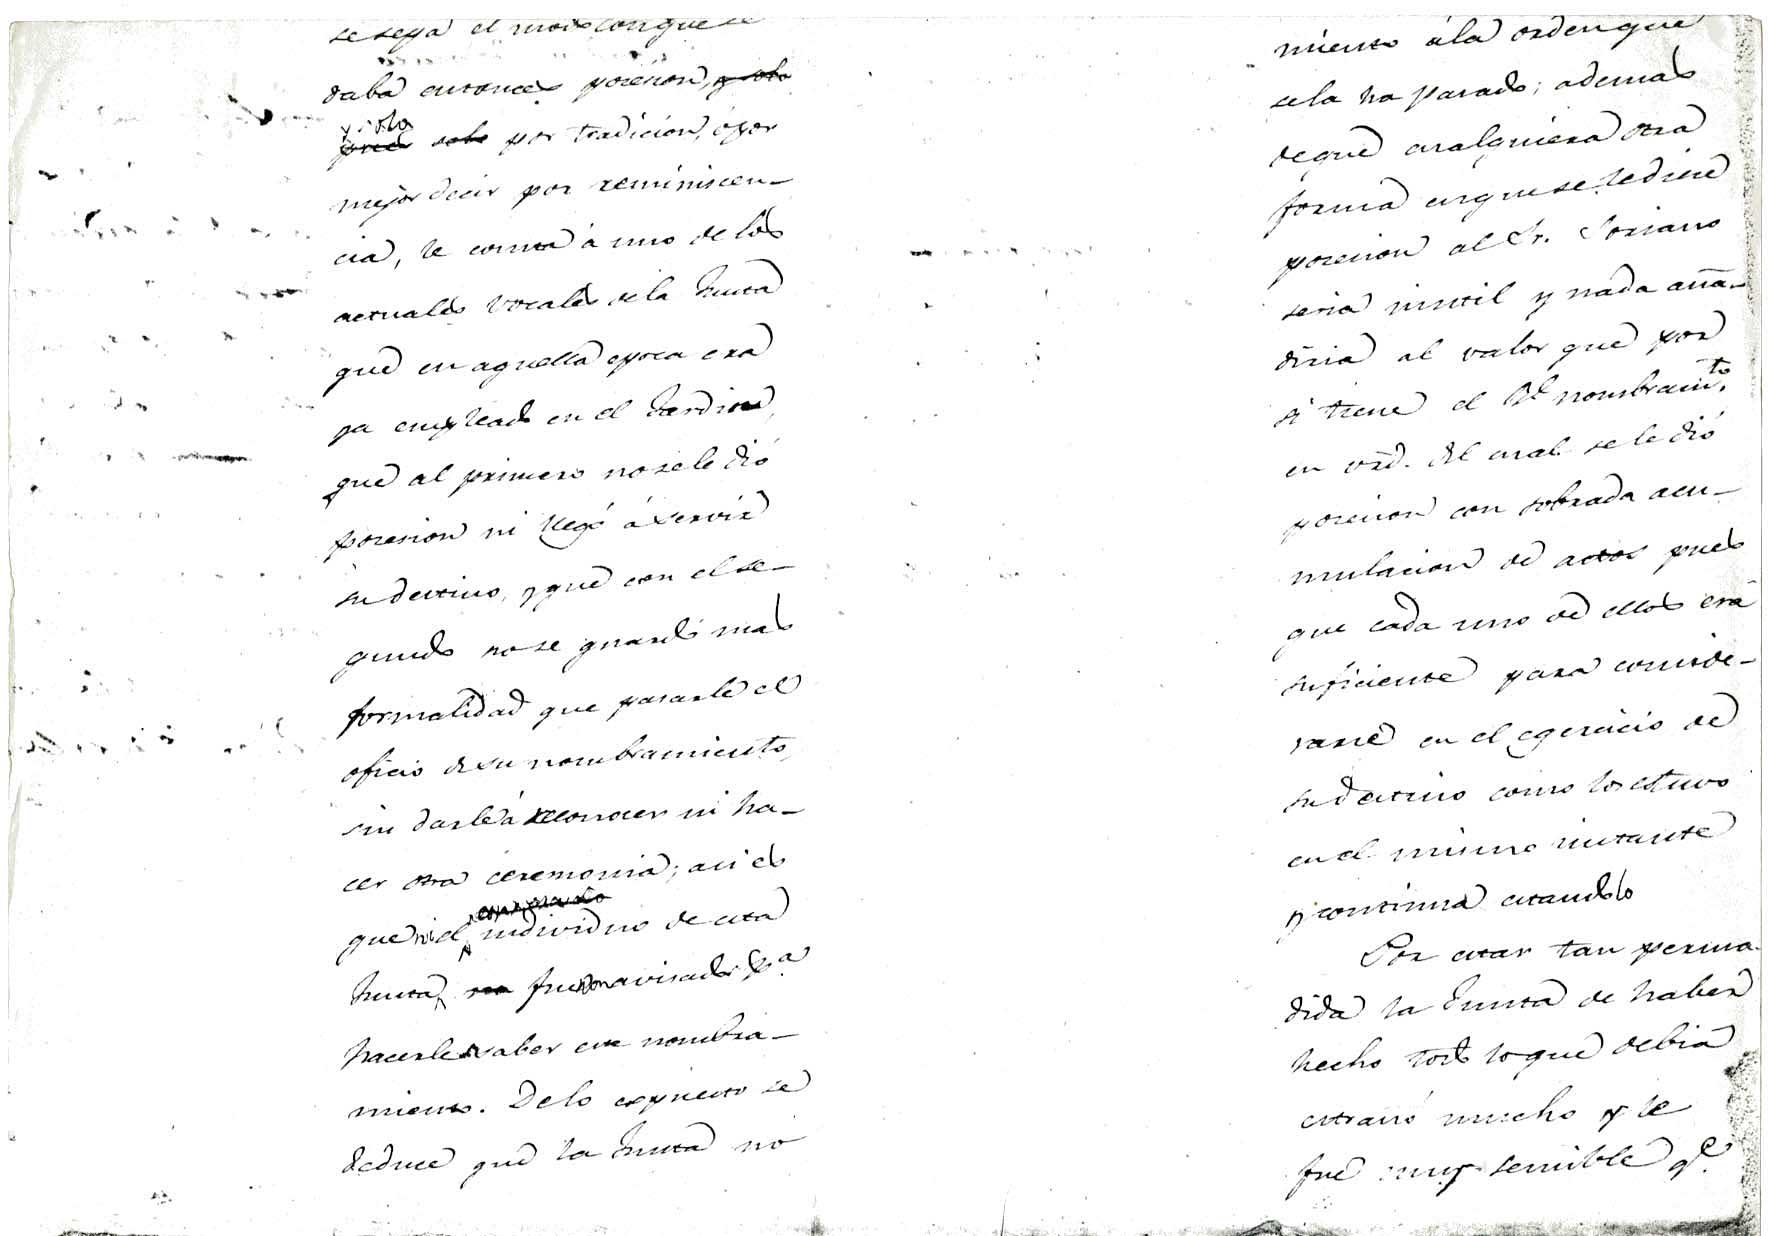 se sepa el modo con que se
daba entonces posesion, y solo
y solo
pues solo por tradicion, ó por
mejor decir por reminiscen-
cia, le consta á uno de los
actuales vocales de la Junta
que en aquella epoca era
ya empleado en el Jardin,
que al primero no se le dió
posesion ni llegó á servir
su destino, y que con el se-
gundo no se guardó mas
formalidad que pasarle el
oficio de su nombramiento,
sin darle á reconocer ni ha-
cer otra ceremonia; asi es
que ni el individuo de esta
Junta, fueron avisados p.a
hacerles saber ese nombra-
miento. De lo expuesto se
deduce que la Junta no
miento á la orden que
se la ha pasado; ademas
de que cualquiera otra
forma en que se le diese
posesion al Sr. Soriano
seria inutil y nada aña-
diria al valor que por
si tiene el Rl nombramto.
en vrd. del cual se le dió
posesion con sobrada acu-
mulacion de actos pues
que cada uno de ellos era
suficiente para conside-
rarse en el egercicio de
su destino como lo estuvo
en el mismo instante
y continua estandolo
Por estar tan persua-
dida la Junta de haber
hecho todo lo que debia
estrañó mucho y le
fue muy sensible q.e